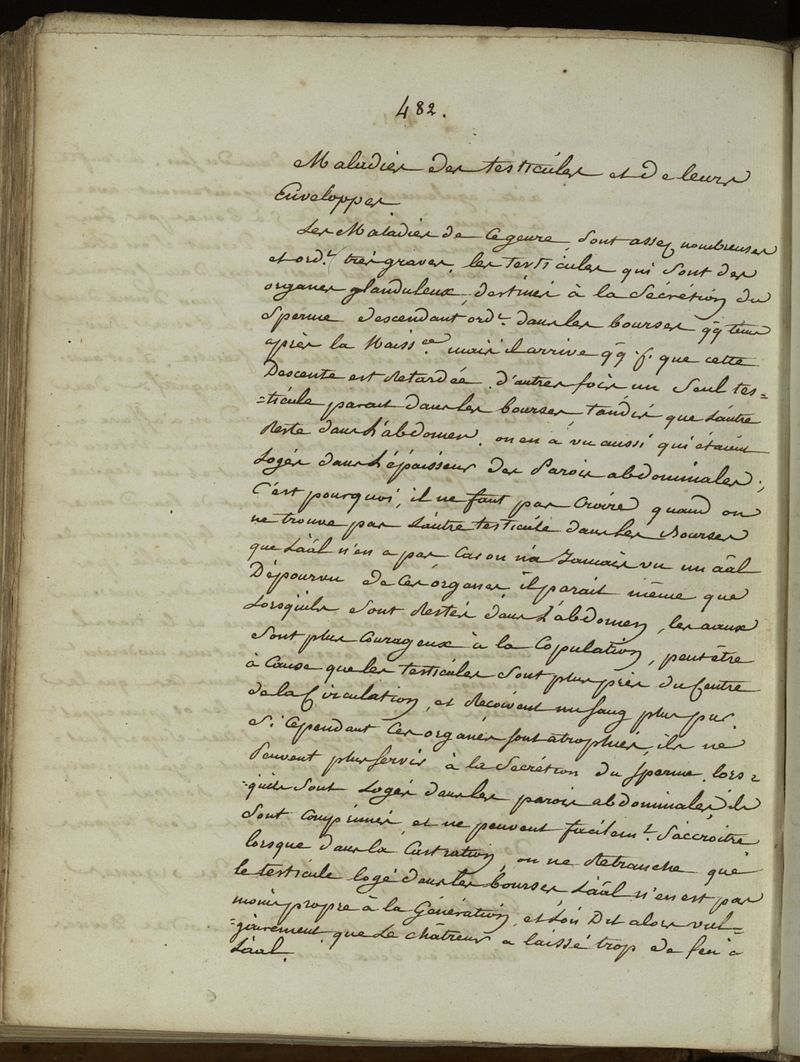 482.
Maladies des testicules et de leurs
Enveloppes
Les Maladies de ce genre, sont assez nombreuses
et ord.t très graves, les testicules qui sont des
organes glanduleux, destinés à la Sécrétion du
Sperme descendant ord.t dans les bourses qq tems
après la Naiss.ce mais il arrive qq.f. que cette
Descente est Retardée. d'autres fois un Seul tes=
=ticule parait dans les bourses tandis que L'autre
Reste dans L'abdomen. on en à vu aussi qui étaient
Logés dans L'épaisseur des Parois abdominales;
C'est pourquoi, il ne faut pas Croire quand on
ne trouve pas L'autre testicule dans les Bourses
que L'aâl n'en a pas Car on n'a Jamais vu un aâl
Dépourvu de Ces organes, il parait même que
Lorsqu'ils Sont Restés dans L'abdomen, les aaux
Sont plus Courageux à la Copulation, peut être
à Cause que les testicules Sont plus près du Centre
de la Circulation, et Recoivent un Sang plus pur.
Si Cependant Ces organes sont atrophiés, ils ne
Peuvent plus servir à la Secrétion du sperme. lors=
=qu'ils Sont Logés dans les parois abdominales ils
Sont Comprimés et ne peuvent facilem.t S'accroitre
lorsque dans la Castration, on ne Retranche que
le testicule logé dans les bourses L'aâl n'en est pas
moins propre à la Génération, et L'on Dit alors vul=
=gairement que Le châtreur a laissé trop de feu à
L'aâl.